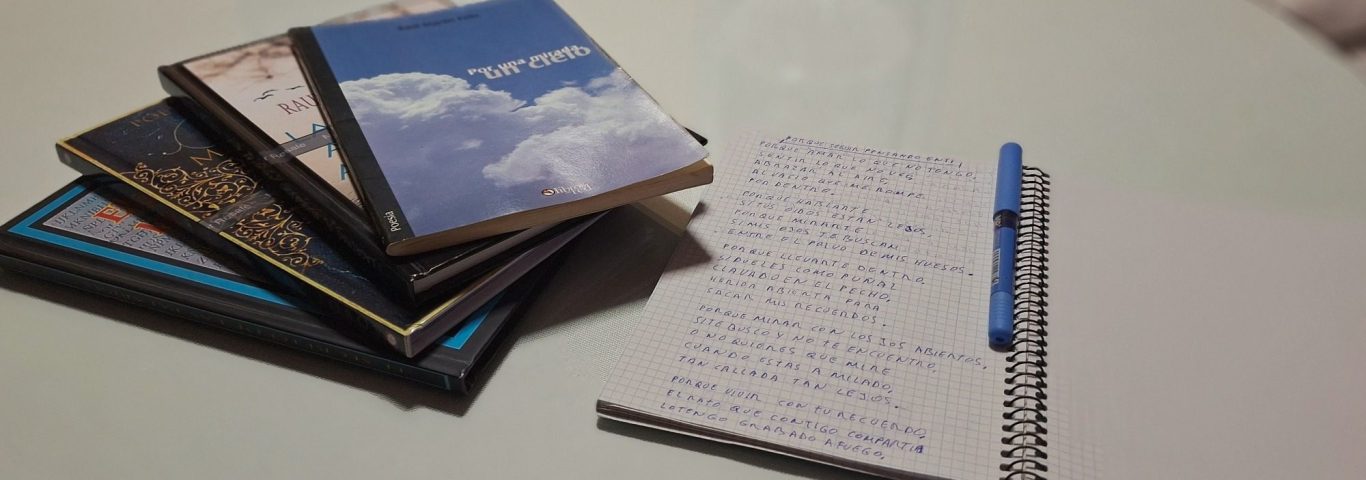 Por una mirada
un cielo
Poesía
RAU
LA
POE
M
PORQUE SEGUIR PENSANDO EN TI
PORQUE AMAR LO QUE NO TENGO,
SENTIR LO QUE NO VEO
ABRAZAR AL AIRE
AL VACIO QUE ME ROMPE
POR DENTRO.
PORQUE HABLARTE
SI TUS OIDOS ESTAN LEJOS,
PORQUE MIRARTE
SI MIS OJOS TE BUSCAN
ENTRE EL POLVO DE MIS HUESOS.
PORQUE LLEVARTE DENTRO,
SI DUELES COMO PUÑAL
CLAVADO EN EL PECHO,
HERIDA ABIERTA PARA
SACAR MIS RECUERDOS.
PORQUE MIRAR CON LOS JOS ABIERTOS,
SI TE BUSCO Y NO TE ENCUENTRO,
O NO QUIERES QUE MIRE
CUANDO ESTAS A MI LADO,
TAN CALLADA TAN LEJOS.
PORQUE VIVIR CON TU RECUERDO,
EL RATO QUE CONTIGO COMPARTIA
LO TENGO GRABADO A FUEGO,